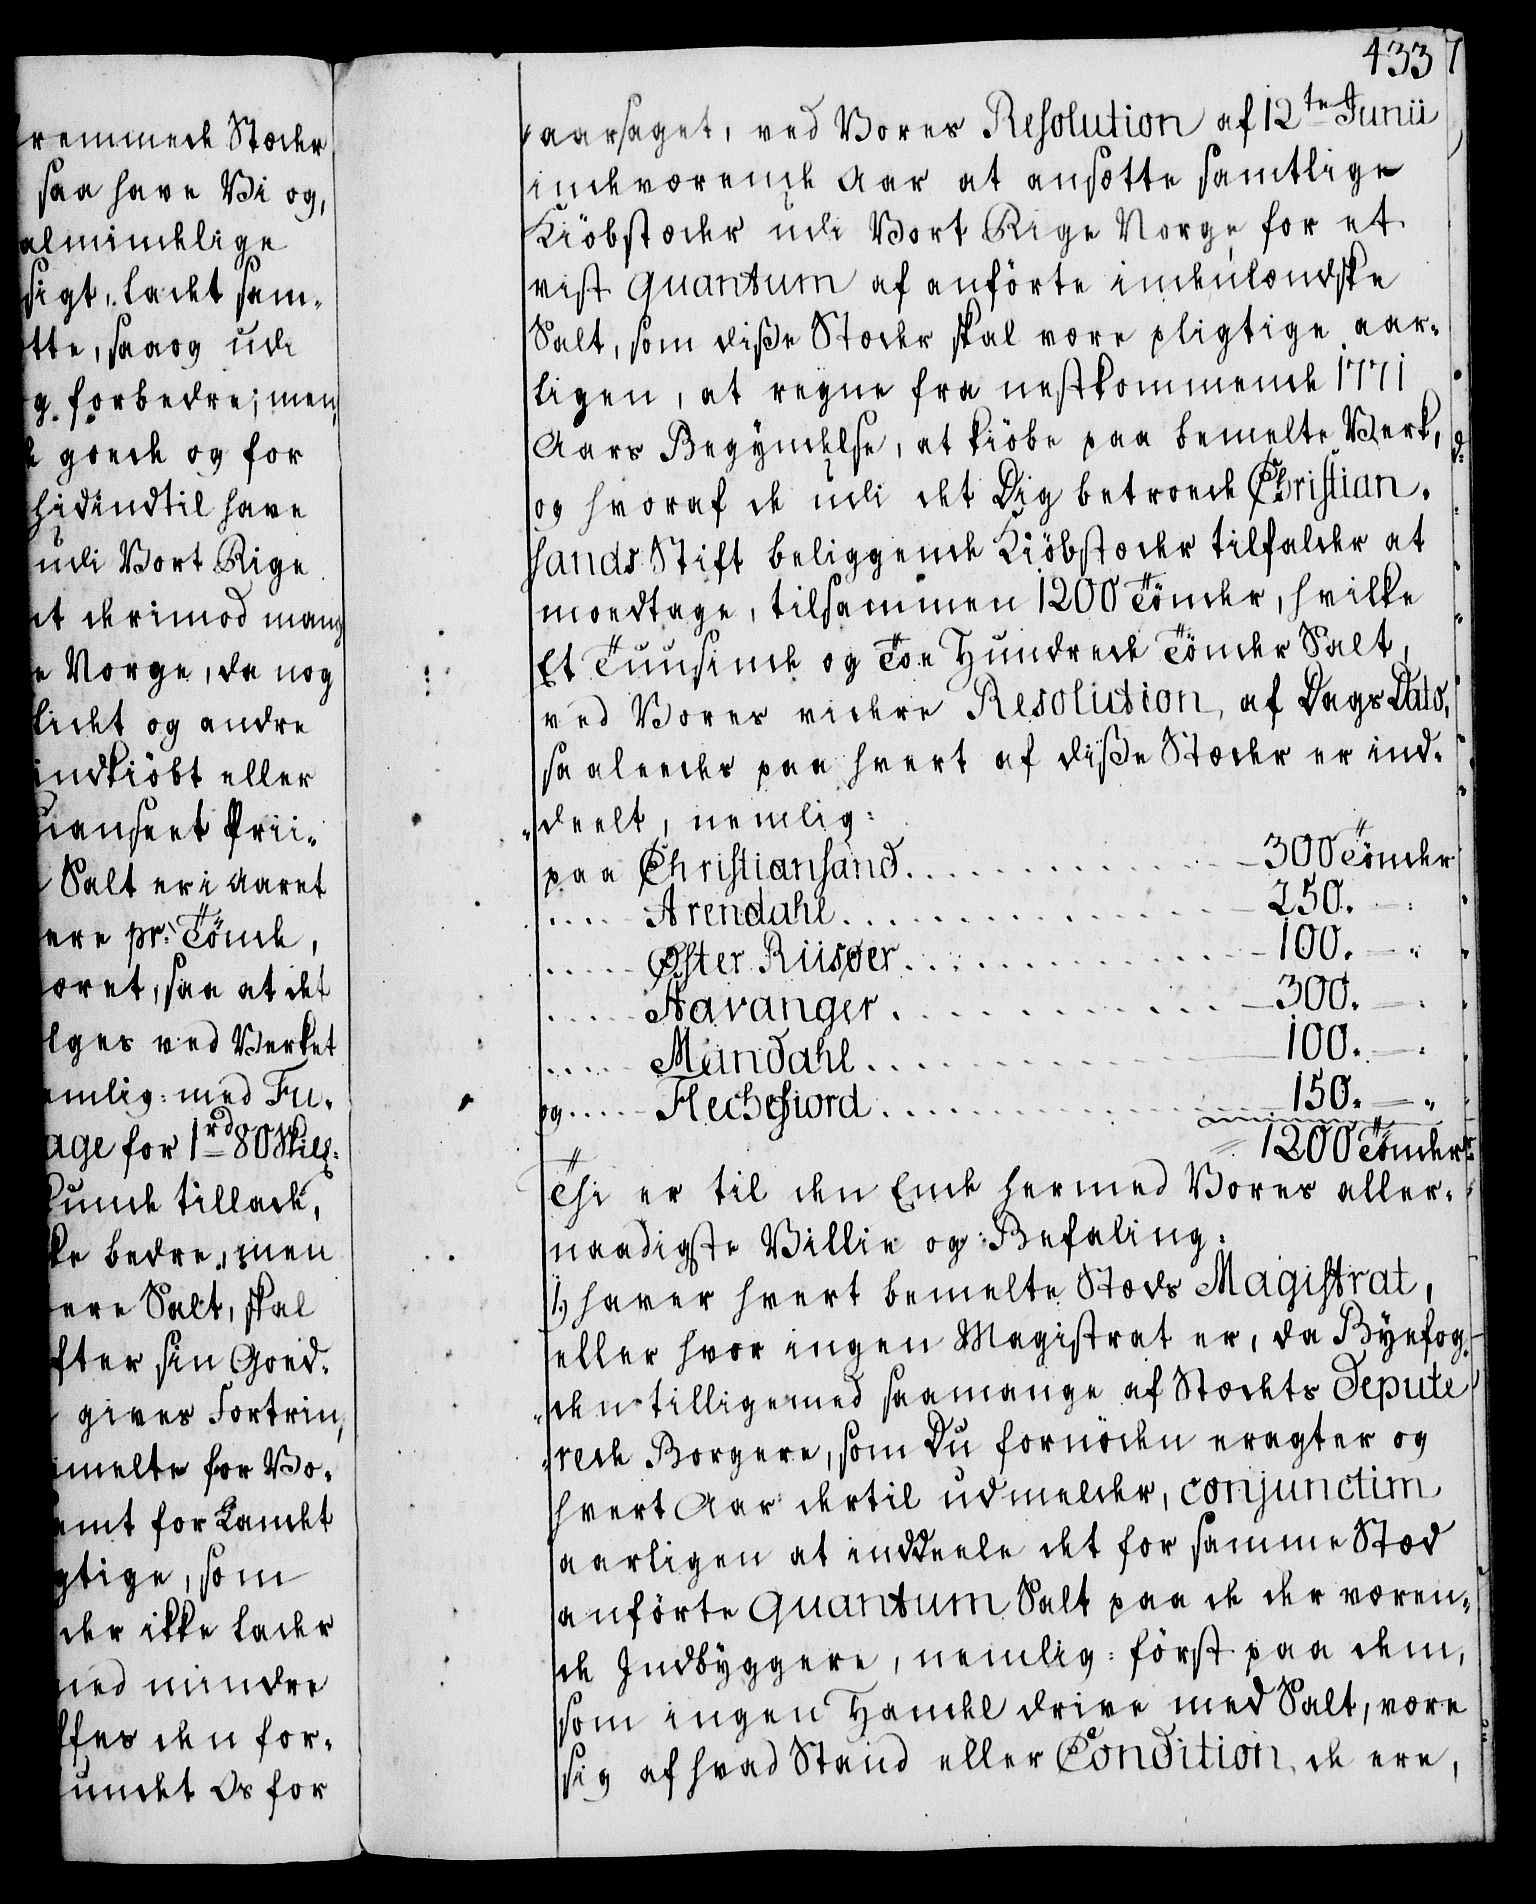 remmede Stæder
saa have Vi og,
almindelige
sigt, ladet sam-
tte, saaog udi
g. forbedre; men
e goede og for
hidindtil have
udi Vort Rige
et derimod mang
e Norge, da nog
lidet og andre
indkiöbt eller
uanseet Prii-
Salt er i Aaret
ere pr: Tönde,
æret, saa at det
lges ved Verket
emlig: med Fu-
age for 1rd 80 Skill:
kunde tillade,
ke bedre, men
ere Salt, skal
fter sin Goed-
gives Fortrin,
melte for Vo-
emt for Landet
gtige, som
der ikke lader
ned mindre
ffes den for-
undet Os for
433
aarsaget, ved Vores Resolution af 12te Junii
indeværende Aar at ansætte samtlige
Kiöbstæder udi Vort Rige Norge for et
vist quantum af anförte indenlændske
Salt, som diße Stæder skal være pligtige aar-
ligen, at regne fra nestkommende 1771
Aars Begÿndelse, at kiöbe paa bemelte Verk,
og hvoraf de udi det Dig betroede Christian-
sands Stift beliggende Kiöbstæder tilfalder at
moedtage, tilsammen 1200 Tönder, hvilke
Et Tuusinde og Toe Hundrede Tönder Salt,
ved Vores videre Resolution, af Dags Dato,
saaleedes paa hvert af diße Stæder er ind-
deelt, nemlig:
paa Christiansand. . . . . . 300 Tönder
. . . . Arendahl. . . . . . 250. — .
. . . . Øster Riisøer. . . . . . 100. — "
. . . . Stavanger. . . . . . 300. — .
. . . . Mandahl. . . . . . 100. — .
og . . . . Flechefiord. . . . . . 150. — "
1200 Tönder
Thi er til den Ende hermed Vores aller-
naadigste Villie og Befaling:
1,) haver hvert bemelte Stæds Magistrat,
eller hvor ingen Magistrat er, da Bÿefog-
den tilligemed saamange af Stædets Depute
rede Borgere, som Du fornöden eragter og
hvert Aar dertil udmelder, conjunctim
aarligen at inddeele det for samme Stæd
anförte Quantum Salt paa de der væren-
de Indbÿggere, nemlig: först paa dem,
som ingen Handel drive med Salt, være
sig af hvad Stand eller Condition de ere,